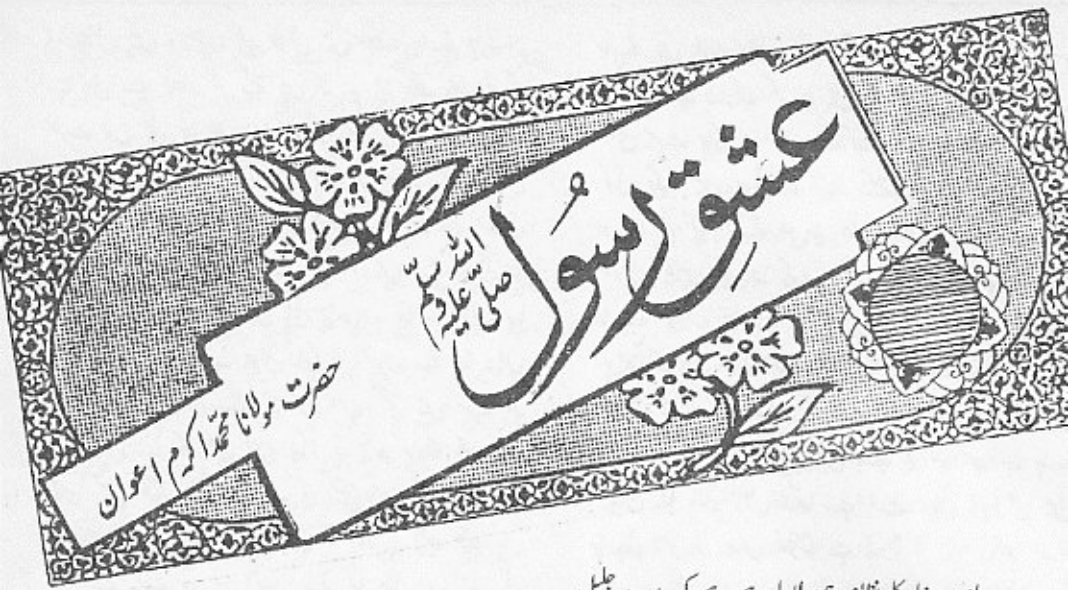 عشق رسول
صلی اللہ علیہ وسلم
حضرت مولانا محمد اکرم اعوان